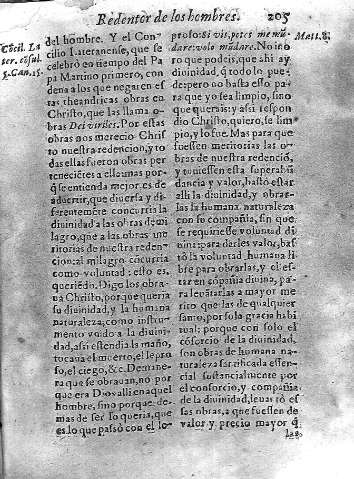 Redentor de los hombres. 205
del hombre. Y el Con-
cilio Lateranense, que se
celebrò en tiempo del Pa
pa Martino primero, con
dena a los que negaren es
tas theandricas obras en
Christo, que las llama o-
bras Dei viriles. Por estas
obras nos merecio Chris
to nuestra redencion, y to
das ellas fueron obras per
tenecietes a ellas mas porq̃
q̃ se entienda mejor es de
aduertir, que diuersa y di
ferentemẽte concurria la
diuinidad a las obras de mi
lagro, que a las obras me
ritorias de nuestra reden-
cion: al milagro cõcurria
como voluntad: esto es,
queriẽdo. Digo los obra-
ua Christo, porque queria
su diuinidad, y la humana
naturaleza, como instru-
mento vnido a la diuini-
dad, assi estendia la maño,
tocaua el muerto, el lepro
so, el ciego, &c. De mane-
ra que se obrauan, no por
que era Dios alli en aquel
hombre, sino porque de-
mas de ser lo queria, que
es lo que passò con el le-
proso: Si vis, potes me mũ-
dare: volo mũdare. No ino
ro que podeis, que ahi ay
diuinidad, q̃ todo lo pue-
de: pero no basta esso pa-
ra que yo sea limpio, sino
que querais: y assi respon
dio Christo, quiero, se lim
pio, y lo fue. Mas para que
fuessen meritorias las o-
bras de nuestra redenciõ,
y tuuiessen esta superabũ
dancia y valor, bastò estar
alli la diuinidad, y obrar-
las la humana naturaleza
con su compañia, sin que
se requiriesse voluntad di
uina: para derles valor, bas
tò la voluntad humana li
bre para obrarlas, y el es-
tar en cõpañia diuina, pa-
ra leuãtarlas a mayor me
rito que las de qualquier
santo, por sola gracia habi
tual: porque con solo el
cõsorcio de la diuinidad,
son obras de humana na-
turaleza satisficada essen-
cial sustancialmente por
el consorcio, y compañia
de la diuinidad, leuãtò es
sas obras, a que fuessen de
valor y precio mayor q̃
las
Matt. 8.
Cõcil. La
ter. cõsul.
5. Can. 15.